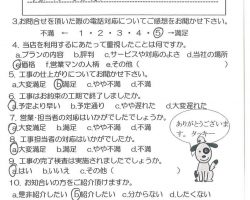 3.お問合せを頂いた際の電話対応についてご感想をお聞かせ下さい。
不満 ← 1・2・3・4・5 →満足
4.当店を利用するにあたって重視したことは何ですか。
a.プランの内容 b.評判 c.サービスや対応のよさ d.当社の場所
e.価格 f.営業マンの人柄 e.その他( )
5.工事の仕上がりについてお聞かせ下さい。
a.大変満足 b.満足 c.やや不満 d.不満
6.工事はお約束の工期で終了しましたか。
a.予定より早い b.予定通り c.やや遅れた d.大変遅れた
7.営業・担当者の対応はいかがでしたでしょうか。
a.大変満足 b.満足 c.やや不満 d.不満
8.工事担当者の対応はいかがでしたか。
a.大変満足 b.満足 c.やや不満 d.不満
9.工事の完了検査は実施されましたでしょうか。
a.はい b.いいえ c.その他( )
10.お知合いの方をご紹介頂けますか。
a.是非紹介したい b.紹介したい c.分からない d.したくない
ありがとうございま
す。